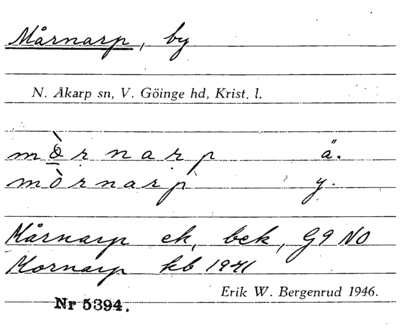 Mårnarp, by
N. Åkarp sn, V. Göinge hd, Krist. l.
mòrnarp ä.
mòrnarp y.
Mårnarp ek, bck, G9 NO
Mornarp kb 1941
Erik W. Bergenrud 1946.
Nr 5394.